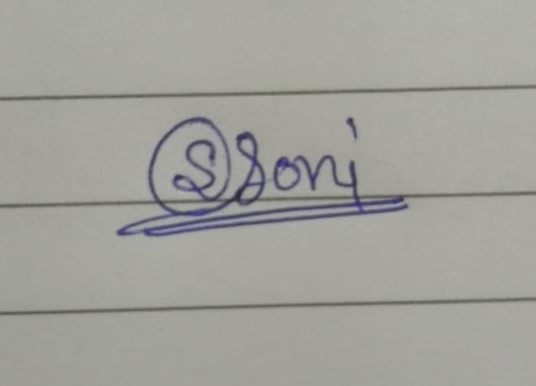 S Soni